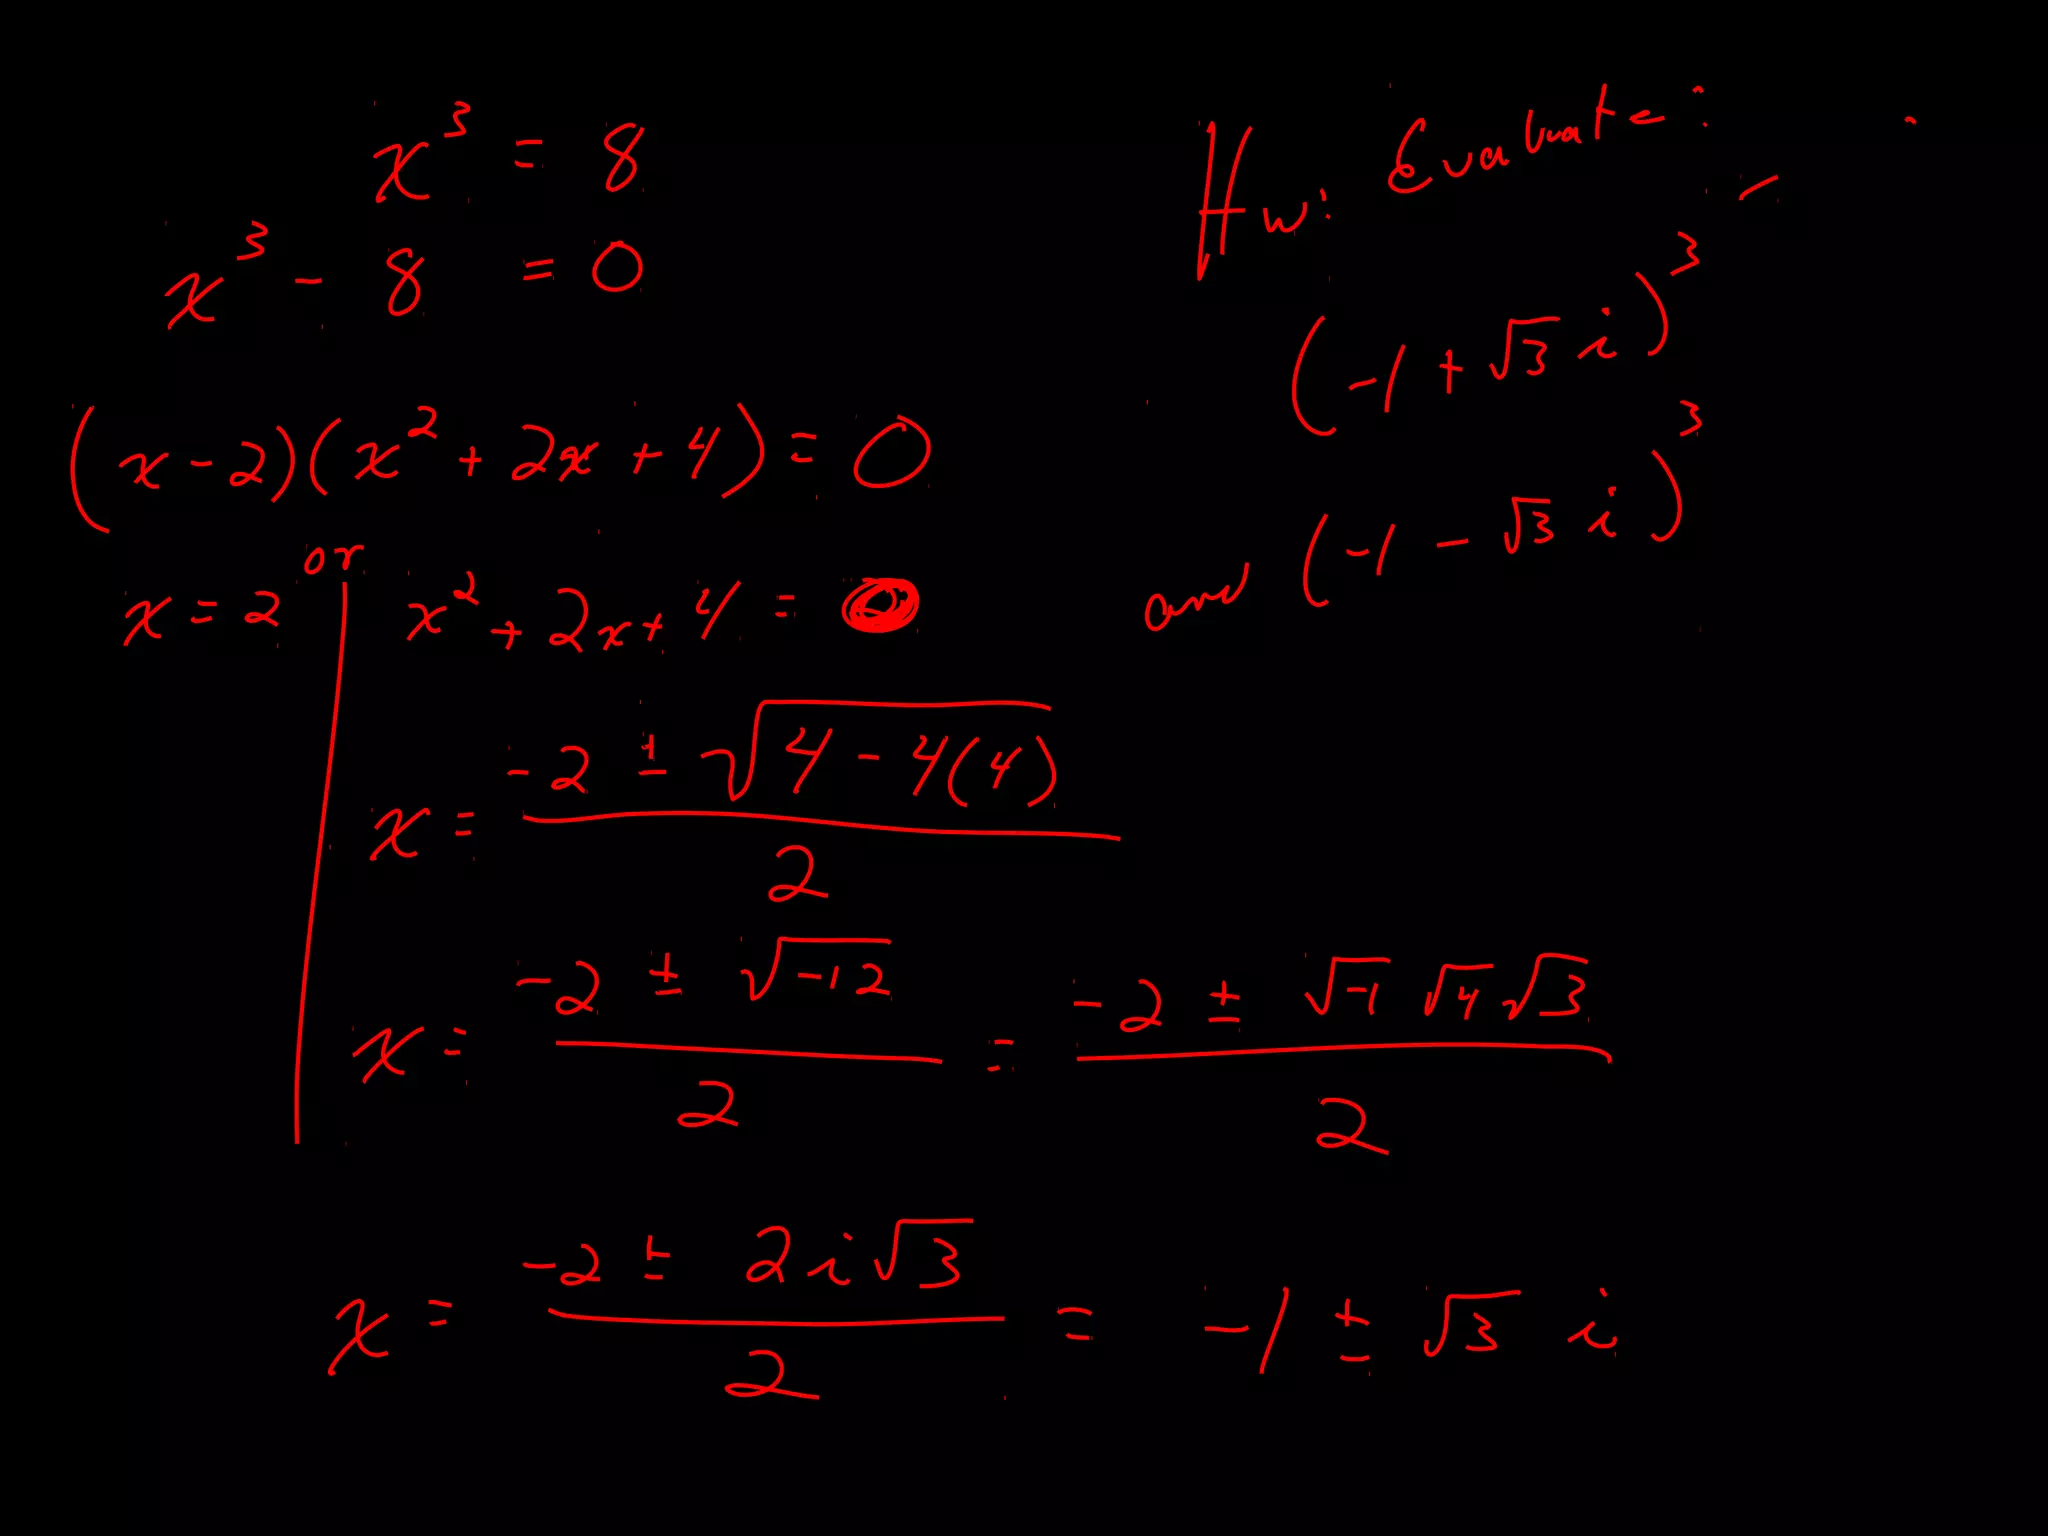 x³ = 8
x³ - 8 = 0
(x-2)(x² + 2x + 4) = 0
x = 2 or x² + 2x + 4 = 0
x = (-2 ± √(4 - 4(4))) / 2
x = (-2 ± √-12) / 2 = (-2 ± √-1 √4 √3) / 2
x = (-2 ± 2i√3) / 2 = -1 ± √3 i
HW: Evaluate:
(-1 + √3 i)³
and (-1 - √3 i)³